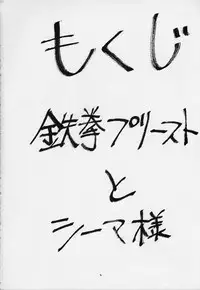 もくじ
鉄拳プリースト
と
シーマ様